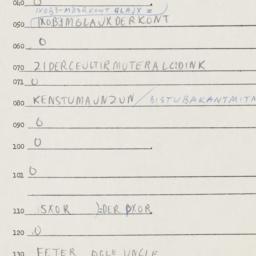 040 0
050 INOBIMGLAUXDERKONT
060 0
070 ZIDERCEULTIRMUTERALCIDINK
071 0
080 KENSTUMAUNZUN / BISTUBAKANTMITA
090 0
100 0
101 0
110 SXOR DER DXOR
120 0
130 FETER UNCLE